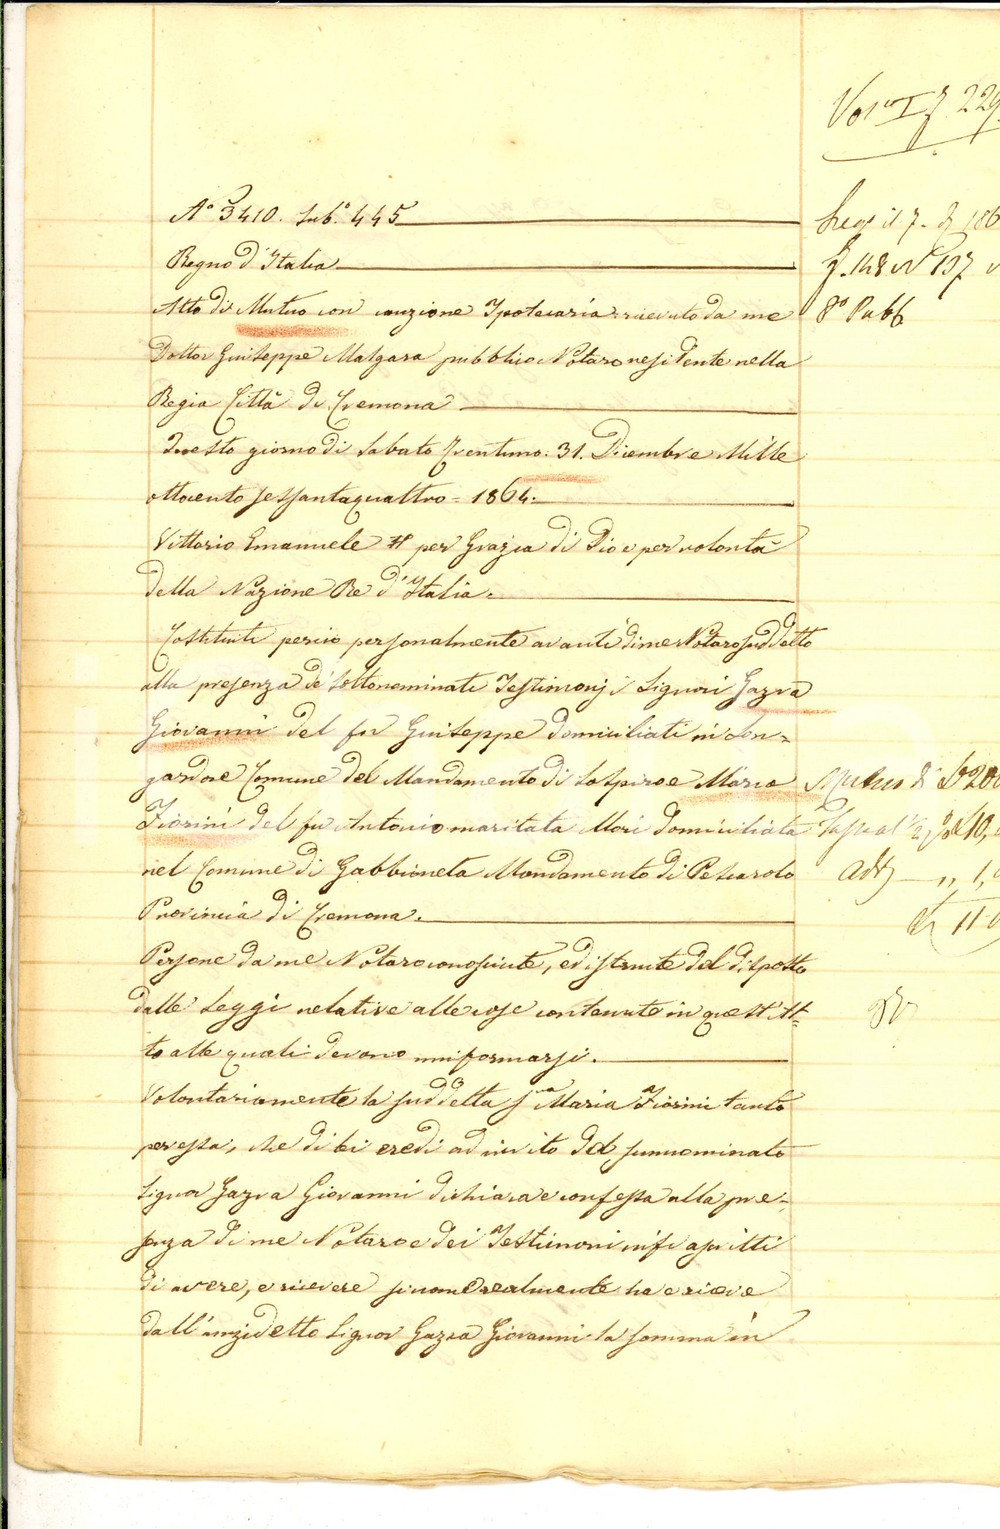 N.° 3410. Sub.° 445
Regno d'Italia
Atto di Mutuo con cauzione Ipotecaria ricevuto da me
Dottor Giuseppe Malgara pubblico Notaro residente nella
Regia Città di Cremona
Questo giorno di Sabato Trentuno. 31. Dicembre Mille
ottocento sessantaquattro = 1864.
Vittorio Emanuele II per Grazia di Dio e per volontà
della Nazione Re d'Italia.
Costituiti perciò personalmente avanti di me Notaro suddetto
alla presenza de' sottonominati Testimonj i Signori Gazza
Giovanni del fu Giuseppe domiciliati in Lon=
gardore Comune del Mandamento di Sospiro e Maria
Fiorini del fu Antonio maritata Mori domiciliata
nel Comune di Gabbioneta Mandamento di Pescarolo
Provincia di Cremona.
Persone da me Notaro conosciute, ed istruite del disposto
dalle Leggi relative alle cose contenute in quest'At=
to alle quali devono uniformarsi.
Volontariamente la suddetta S.ra Maria Fiorini tanto
per essa, che di lei eredi ad invito del sunnominato
Signor Gazza Giovanni dichiara e confessa alla pre=
senza di me Notaro e dei Testimoni infrascritti
di avere, e ricevere siccome realmente ha e riceve
dall'anzidetto Signor Gazza Giovanni la somma in
Vol. I f. 229
Reg. il 7.
f. 148 N.° 197
8° Pubb
Mutuo di
Tassa 10,
Add 1,
11